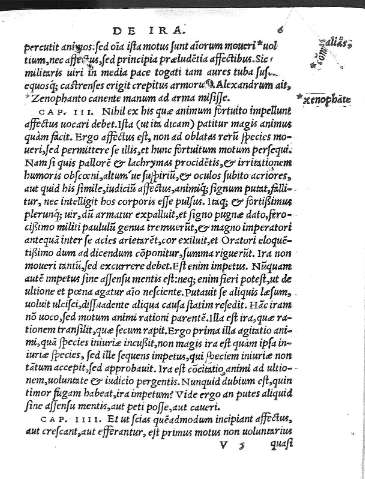 DE IRA. 6
percutit animos. sed oĩa ista motus sunt aĩorum moueri * uol
tium, nec affectus, sed principia præludētia affectibus. Sic
militaris uiri in media pace togati tam aures tuba
equosq; castrenses erigit crepitus armorũ. Alexandrum ait,
* Zenophanto canente manum ad arma misisse.
CAP. III. Nihil ex his quæ animum fortuito impellunt
affectus uocari debet. Ista (ut ita dicam) patitur magis animus
quàm facit. Ergo affectus est, non ad oblatas rerũ species mo-
ueri, sed permittere se illis, et hunc fortuitum motum persequi.
Nam si quis pallorē & lachrymas procidētis, & irritationem
humoris obscœni, altum ue suspiriũ, & oculos subito acriores,
aut quid his simile, iudiciũ affectus, animiq; signum putat, falli-
tur, nec intelligit hos corporis esse pulsus. Itaq; & fortißimus
plerunq; uir, dũ armatur expalluit, et signo pugnæ dato, fero-
cißimo militi paululũ genua tremuerũt, & magno imperatori
antequã inter se acies arietarēt, cor exiluit, et Oratori eloquē-
tißimo dum ad dicendum cõponitur, summa riguerũt. Ira non
moueri tantũ, sed excurrere debet. Est enim impetus. Nũquam
autē impetus sine assensu mentis est: neq; enim fieri potest, ut de
ultione & pœna agatur aĩo nesciente. Putauit se aliquis læsum,
uoluit ulcisci, dissuadente aliqua causa statim resedit. Hãc iram
nõ uoco, sed motum animi rationi parentē. Illa est ira, quæ ra-
tionem transilit, quæ secum rapit. Ergo prima illa agitatio ani-
mi, quã species iniuriæ incußit, non magis ira est quàm ipsa in-
iuriæ species, sed ille sequens impetus, qui speciem iniuriæ non
tãtum accepit, sed approbauit. Ira est cõcitatio animi ad ultio-
nem, uoluntate & iudicio pergentis. Nunquid dubium est, quin
timor fugam habeat, ira impetum? Vide ergo an putes aliquid
sine assensu mentis, aut peti posse, aut caueri.
CAP. IIII. Et ut scias quēadmodum incipiant affectus,
aut crescant, aut efferantur, est primus motus non uoluntarius
V 5 quasi
* aliâs,
* xenophãte